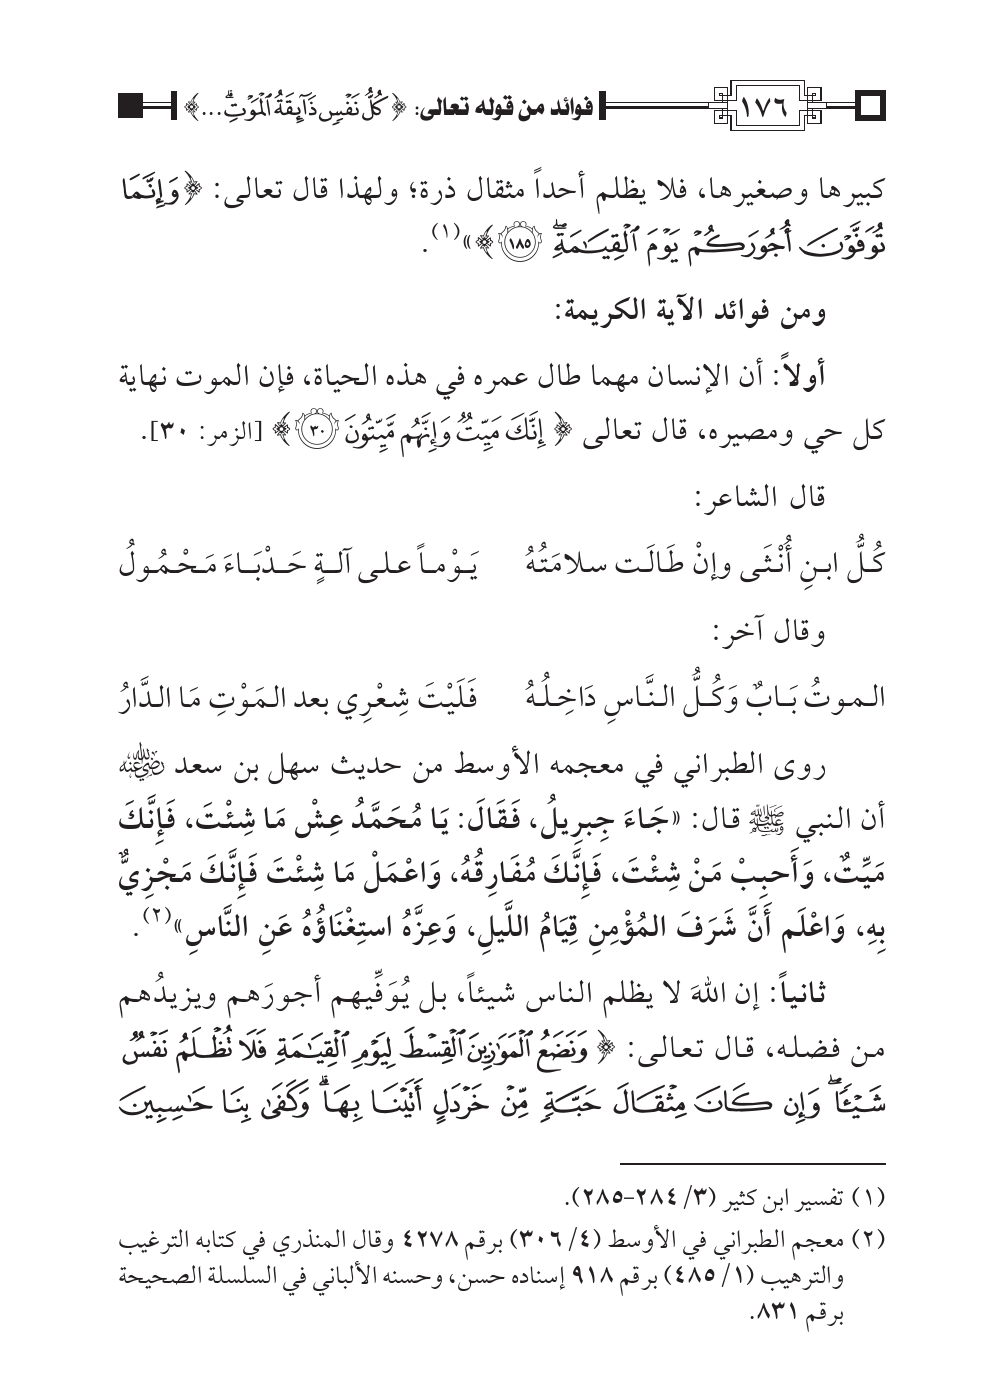 ١٧٦ فوائد من قوله تعالى: ﴿كُلُّ نَفْسٍ ذَآئِقَةُ ٱلْمَوْتِۗ...﴾
كبيرها وصغيرها، فلا يظلم أحداً مثقال ذرة؛ ولهذا قال تعالى: ﴿وَإِنَّمَا
تُوَفَّوْنَ أُجُورَكُمْ يَوْمَ ٱلْقِيَـٰمَةِۖ ١٨٥﴾»(١).
ومن فوائد الآية الكريمة:
أولاً: أن الإنسان مهما طال عمره في هذه الحياة، فإن الموت نهاية
كل حي ومصيره، قال تعالى ﴿إِنَّكَ مَيِّتٌ وَإِنَّهُم مَّيِّتُونَ ٣٠﴾ [الزمر: ٣٠].
قال الشاعر:
كُلُّ ابنِ أُنْثَى وإنْ طَالَت سلامَتُهُ يَوْماً على آلةٍ حَدْبَاءَ مَحْمُولُ
وقال آخر:
الموتُ بَابٌ وَكُلُّ النَّاسِ دَاخِلُهُ فَلَيْتَ شِعْرِي بعد المَوْتِ مَا الدَّارُ
روى الطبراني في معجمه الأوسط من حديث سهل بن سعد رضي الله عنه
أن النبي ﷺ قال: «جَاءَ جِبرِيلُ، فَقَالَ: يَا مُحَمَّدُ عِشْ مَا شِئْتَ، فَإِنَّكَ
مَيِّتٌ، وَأَحبِبْ مَنْ شِئْتَ، فَإِنَّكَ مُفَارِقُهُ، وَاعْمَلْ مَا شِئْتَ فَإِنَّكَ مَجْزِيٌّ
بِهِ، وَاعْلَم أَنَّ شَرَفَ المُؤْمِنِ قِيَامُ اللَّيلِ، وَعِزَّهُ استِغْنَاؤُهُ عَنِ النَّاسِ»(٢).
ثانياً: إن اللهَ لا يظلم الناس شيئاً، بل يُوَفِّيهم أجورَهم ويزيدُهم
من فضله، قال تعالى: ﴿وَنَضَعُ ٱلْمَوَٰزِينَ ٱلْقِسْطَ لِيَوْمِ ٱلْقِيَـٰمَةِ فَلَا تُظْلَمُ نَفْسٌ
شَيْـًٔاۖ وَإِن كَانَ مِثْقَالَ حَبَّةٍ مِّنْ خَرْدَلٍ أَتَيْنَا بِهَاۗ وَكَفَىٰ بِنَا حَـٰسِبِينَ
(١) تفسير ابن كثير (٣/ ٢٨٤-٢٨٥).
(٢) معجم الطبراني في الأوسط (٤/ ٣٠٦) برقم ٤٢٧٨ وقال المنذري في كتابه الترغيب
والترهيب (١/ ٤٨٥) برقم ٩١٨ إسناده حسن، وحسنه الألباني في السلسلة الصحيحة
برقم ٨٣١.